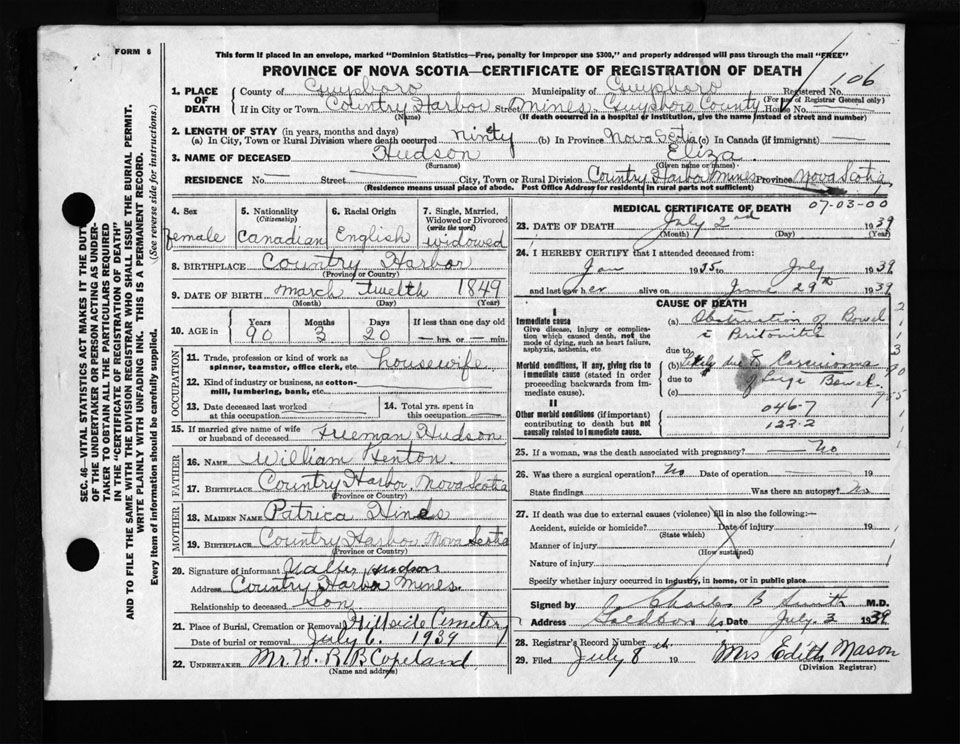 FORM 6
This form if placed in an envelope, marked "Dominion Statistics—Free, penalty for improper use $300," and properly addressed will pass through the mail "FREE"
PROVINCE OF NOVA SCOTIA—CERTIFICATE OF REGISTRATION OF DEATH
106
1. PLACE OF DEATH County of Guysboro Municipality of Guysboro Registered No.
(For use of Registrar General only)
If in City or Town Country Harbor Street Mines. Guysboro County House No.
(Name) (If death occurred in a hospital or institution, give the name instead of street and number)
2. LENGTH OF STAY (in years, months and days)
(a) In City, Town or Rural Division where death occurred ninty (b) In Province Nova Scotia (c) In Canada (if immigrant)
3. NAME OF DECEASED Hudson Eliza.
(Surname) (Given name or names)
RESIDENCE No. Street City, Town or Rural Division Country Harbor Mines Province Nova Scotia
(Residence means usual place of abode. Post Office Address for residents in rural parts not sufficient)
4. Sex 5. Nationality (Citizenship) 6. Racial Origin 7. Single, Married, Widowed or Divorced (write the word)
female Canadian English widowed
8. BIRTHPLACE Country Harbor
(Province or Country)
9. DATE OF BIRTH March Twelth 1849
(Month) (Day) (Year)
10. AGE in Years Months Days If less than one day old
90 3 20 hrs. or min.
OCCUPATION
11. Trade, profession or kind of work as spinner, teamster, office clerk, etc. housewife
12. Kind of industry or business, as cotton-mill, lumbering, bank, etc.
13. Date deceased last worked at this occupation
14. Total yrs. spent in this occupation
15. If married give name of wife or husband of deceased Freeman Hudson
FATHER
16. NAME William Henton.
17. BIRTHPLACE Country Harbor. Nova Scotia
(Province or Country)
MOTHER
18. MAIDEN NAME Patrica Hines
19. BIRTHPLACE Country Harbor Nova Scotia
(Province or Country)
20. Signature of informant Walter Hudson
Address Country Harbor Mines.
Relationship to deceased Son
21. Place of Burial, Cremation or Removal Hillside Cemetery
Date of burial or removal July 6. 1939
22. UNDERTAKER Mr. W. R. B Copeland
(Name and address)
MEDICAL CERTIFICATE OF DEATH
07-03-00
23. DATE OF DEATH July 2nd 1939
(Month) (Day) (Year)
24. I HEREBY CERTIFY that I attended deceased from:
Jan 1935 to July 1939
and last saw her alive on June 29th 1939
CAUSE OF DEATH
I
Immediate cause
Give disease, injury or complication which caused death, not the mode of dying, such as heart failure, asphyxia, asthenia, etc.
(a) Obstruction of Bowel
Peritonitis
due to
Morbid conditions, if any, giving rise to immediate cause (stated in order proceeding backwards from immediate cause).
(b) Carcinoma
due to of large Bowel.
(c)
II
Other morbid conditions (if important) contributing to death but not causally related to immediate cause.
046-7
122-2
25. If a woman, was the death associated with pregnancy? No
26. Was there a surgical operation? No Date of operation 19
State findings Was there an autopsy? No
27. If death was due to external causes (violence) fill in also the following:—
Accident, suicide or homicide? Date of injury 19
(State which)
Manner of injury
(How sustained)
Nature of injury
Specify whether injury occurred in industry, in home, or in public place
Signed by Charles B Smith M.D.
Address Goldboro NS Date July 2 1939
28. Registrar's Record Number
29. Filed July 8th 19 Mrs Edith Mason
(Division Registrar)
SEC. 46—VITAL STATISTICS ACT MAKES IT THE DUTY
OF THE UNDERTAKER OR PERSON ACTING AS UNDER-
TAKER TO OBTAIN ALL THE PARTICULARS REQUIRED
IN THE "CERTIFICATE OF REGISTRATION OF DEATH"
AND TO FILE THE SAME WITH THE DIVISION REGISTRAR WHO SHALL ISSUE THE BURIAL PERMIT.
WRITE PLAINLY WITH UNFADING INK. THIS IS A PERMANENT RECORD.
Every item of information should be carefully supplied. (See reverse side for instructions.)